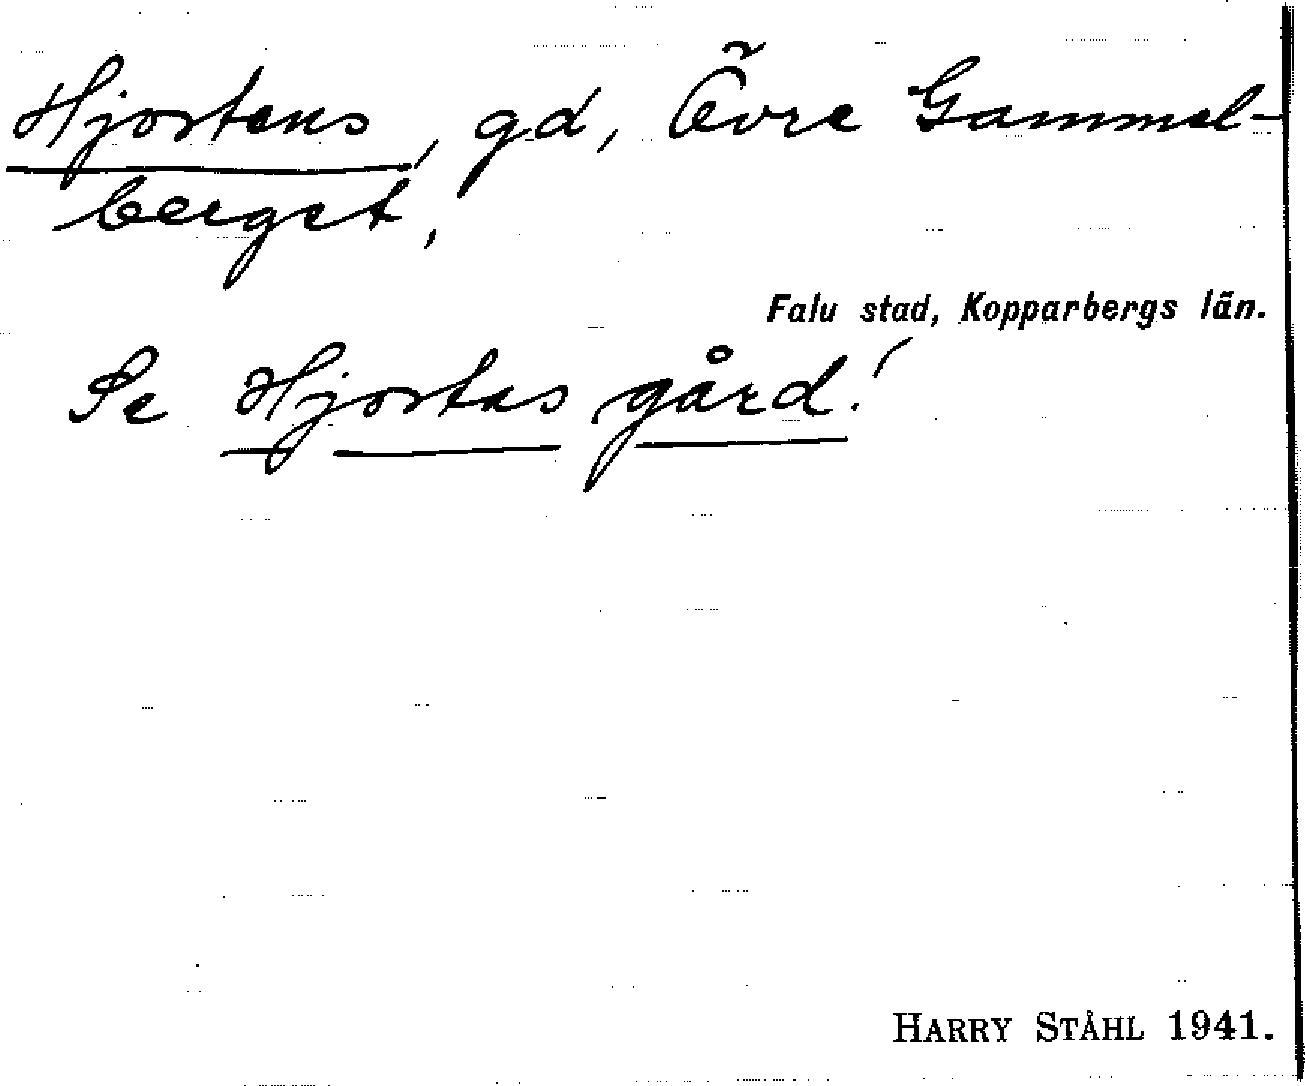 Hjortens, gd, Övre Gammel-
berget,
Falu stad, Kopparbergs län.
Se Hjortas gård!
HARRY STÅHL 1941.